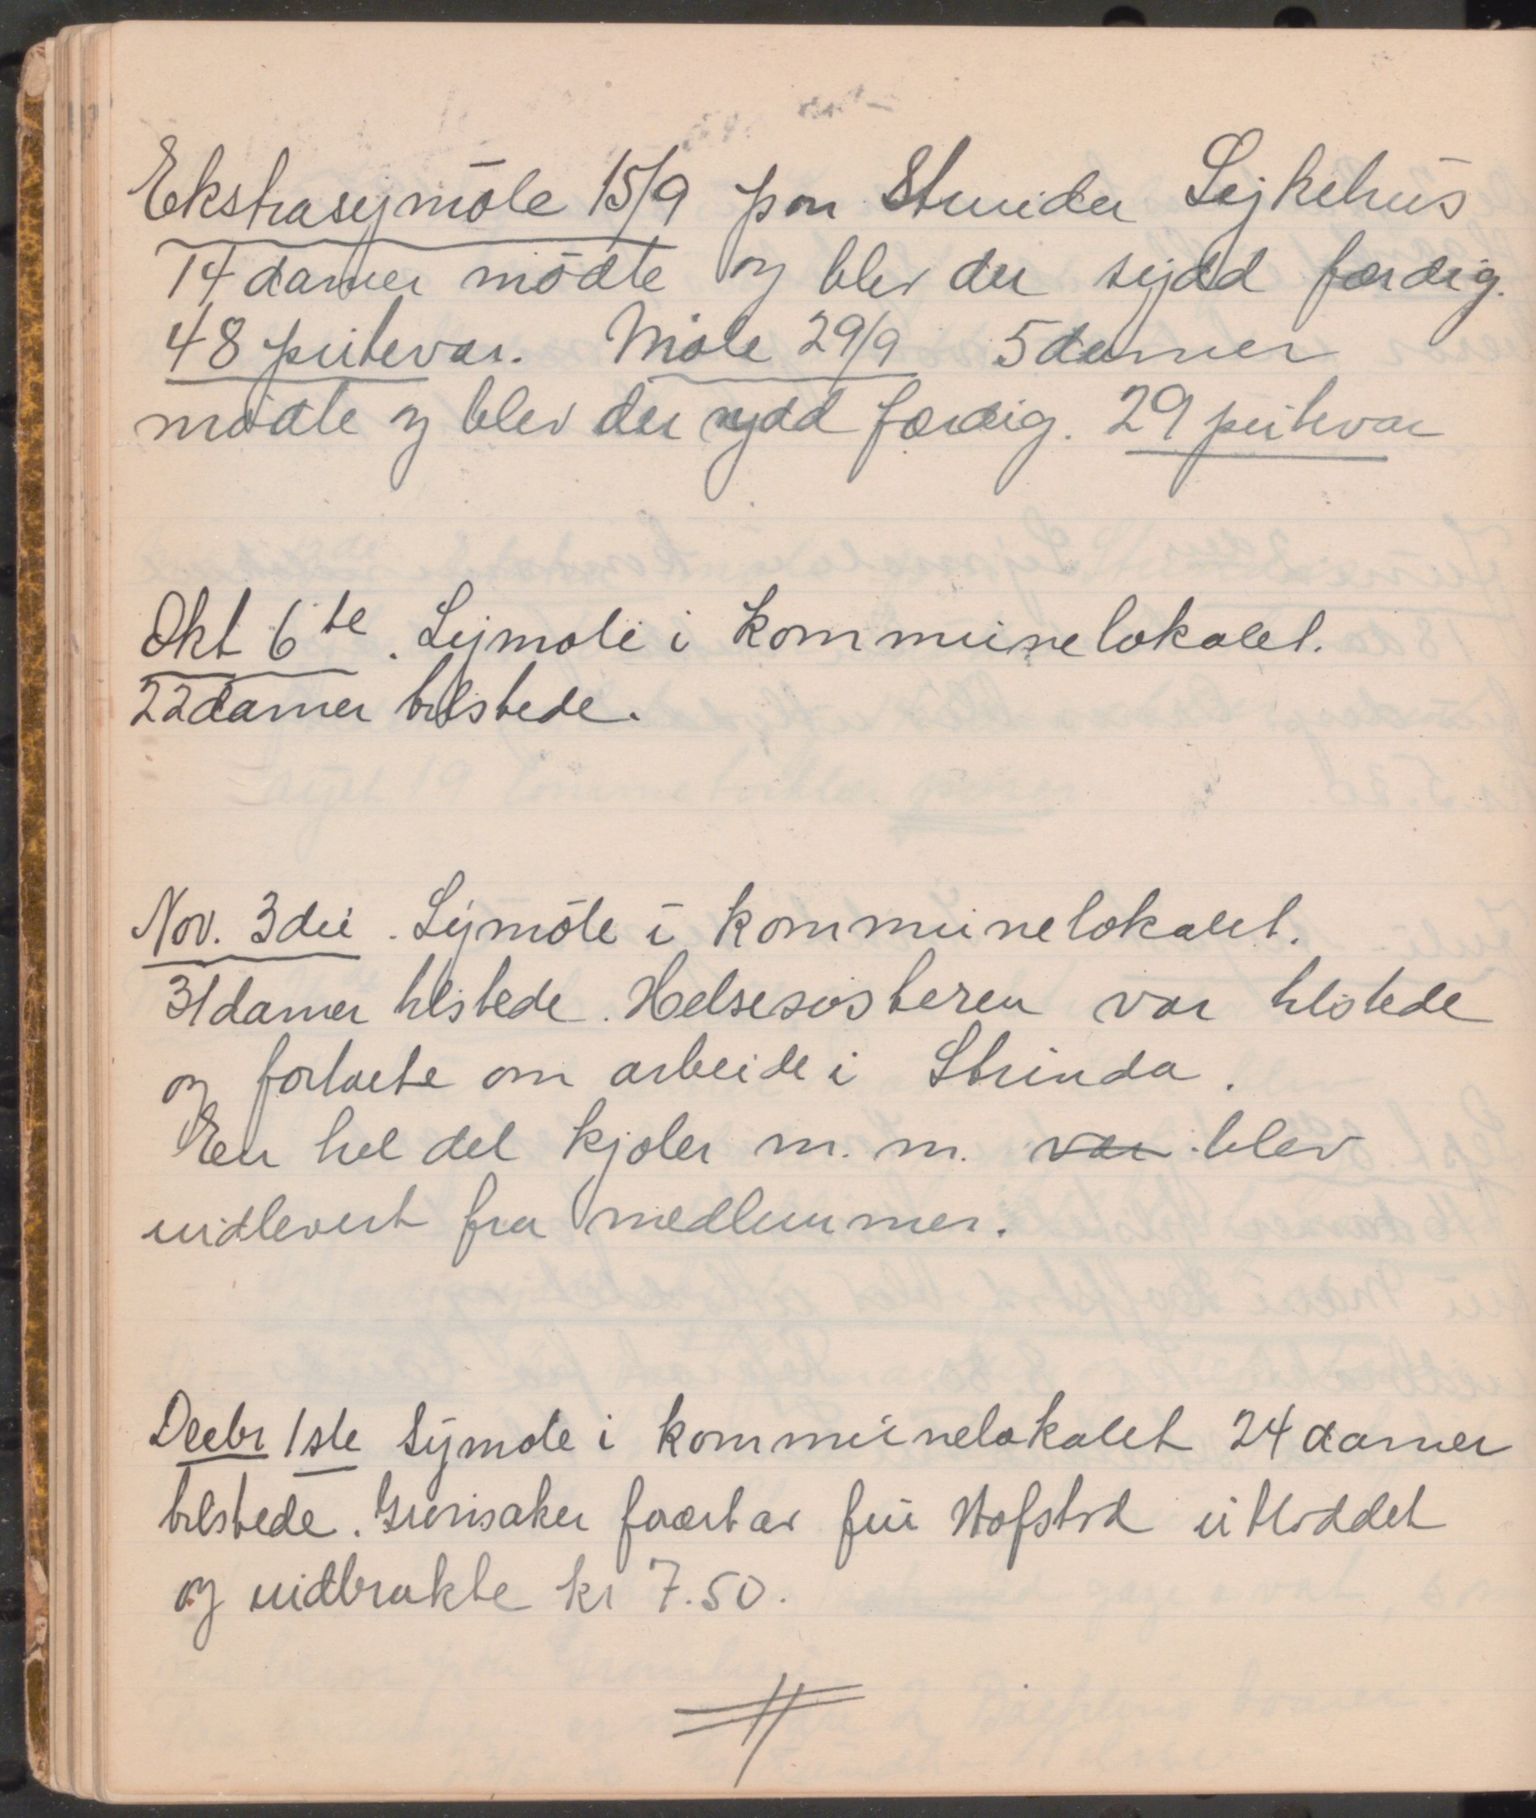 Ekstrasymöte 15/9 paa Strinda Sykehus
14 damer mödte og blev der sydd færdig
48 putevar. Möte 29/9 5 damer
mödte og blev der sydd færdig. 29 putevar
Okt 6te. Symöte i kommunelokalet.
22 damer tilstede.
Nov. 3die. Symöte i kommunelokalet.
31 damer tilstede. Helsesøsteren var tilstede
og fortalte om arbeide i Strinda.
En hel del kjoler m. m. var blev
indlevert fra medlemmer.
Decbr 1ste Symøte i kommunelokalet 24 damer
tilstede. fru Hofstad utloddet
og indbrakte kr 7.50.